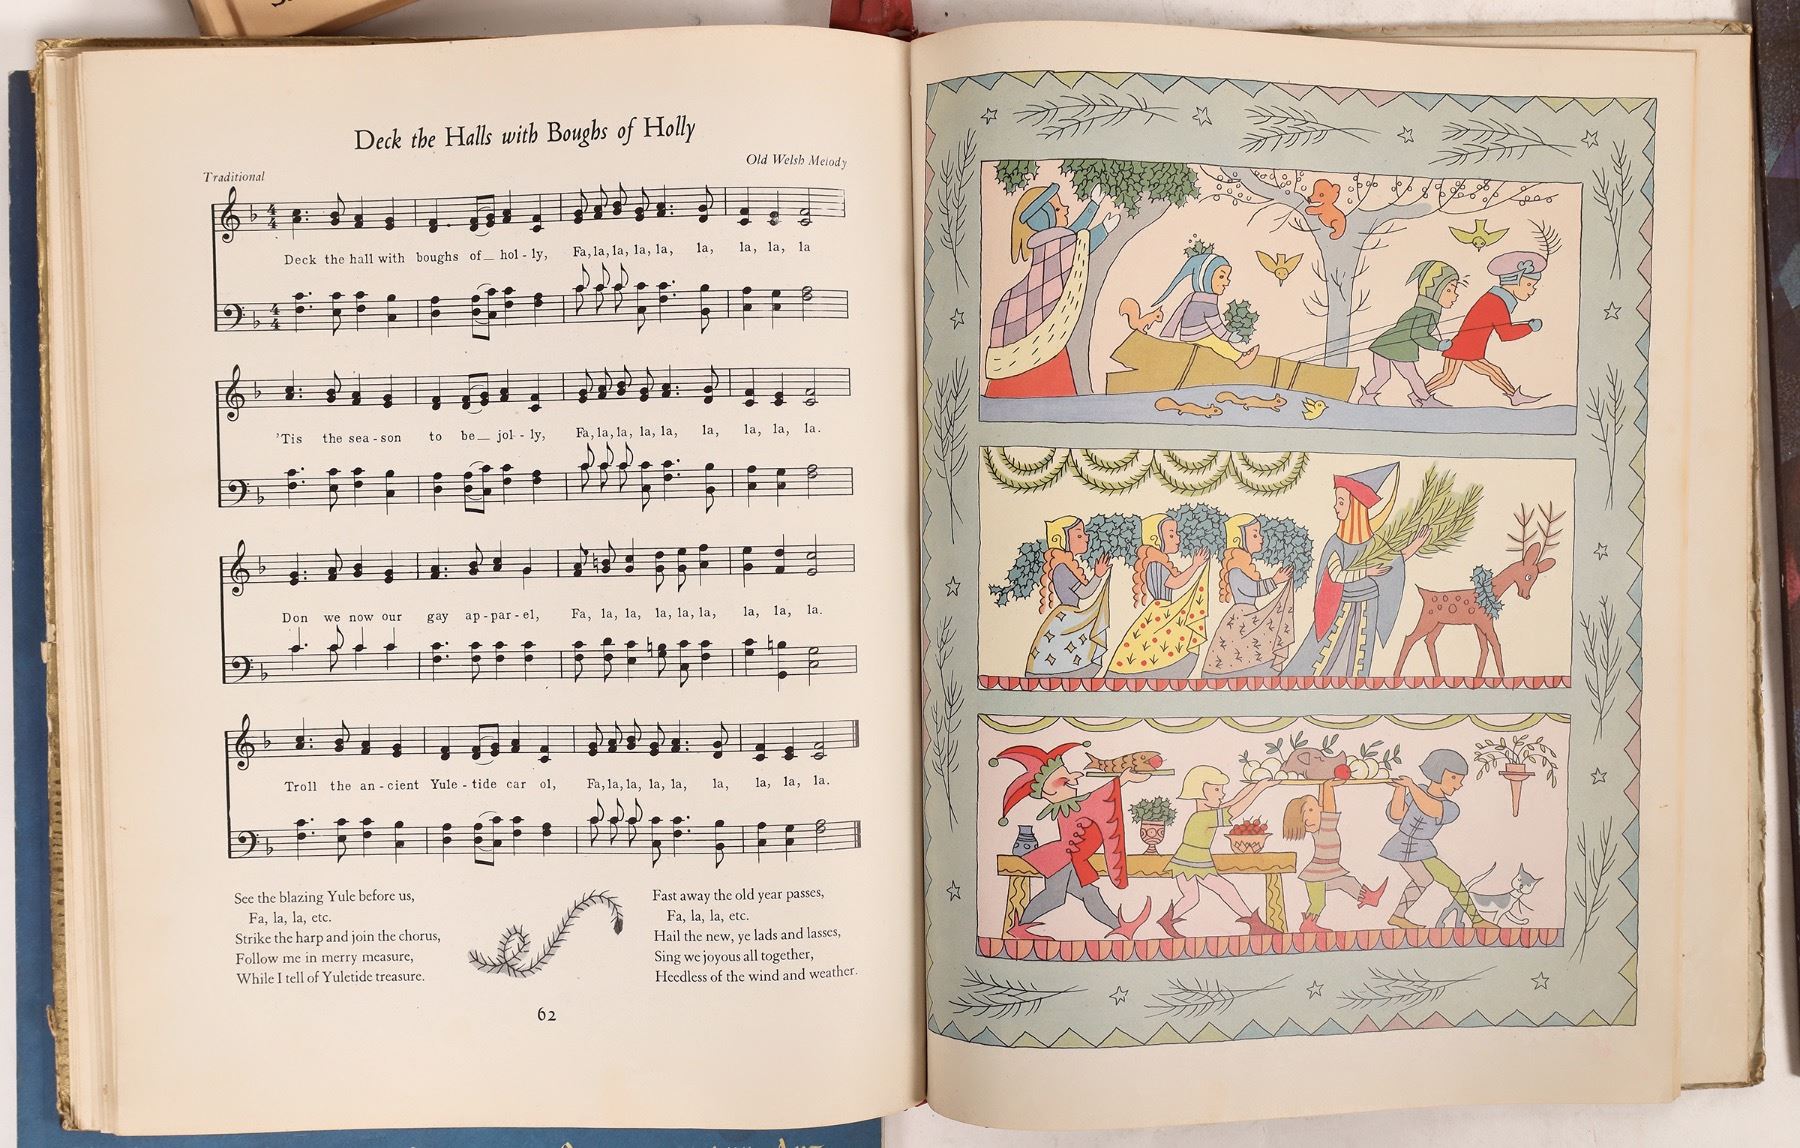 Deck the Halls with Boughs of Holly
Traditional
Old Welsh Melody
Deck the hall with boughs of_ hol - ly, Fa, la, la, la, la, la, la, la, la
'Tis the sea - son to be_ jol - ly, Fa, la, la, la, la, la, la, la, la.
Don we now our gay ap - par - el, Fa, la, la, la, la, la, la, la, la.
Troll the an - cient Yule - tide car ol, Fa, la, la, la, la, la, la, la, la.
See the blazing Yule before us,
Fa, la, la, etc.
Strike the harp and join the chorus,
Follow me in merry measure,
While I tell of Yuletide treasure.
Fast away the old year passes,
Fa, la, la, etc.
Hail the new, ye lads and lasses,
Sing we joyous all together,
Heedless of the wind and weather.
62